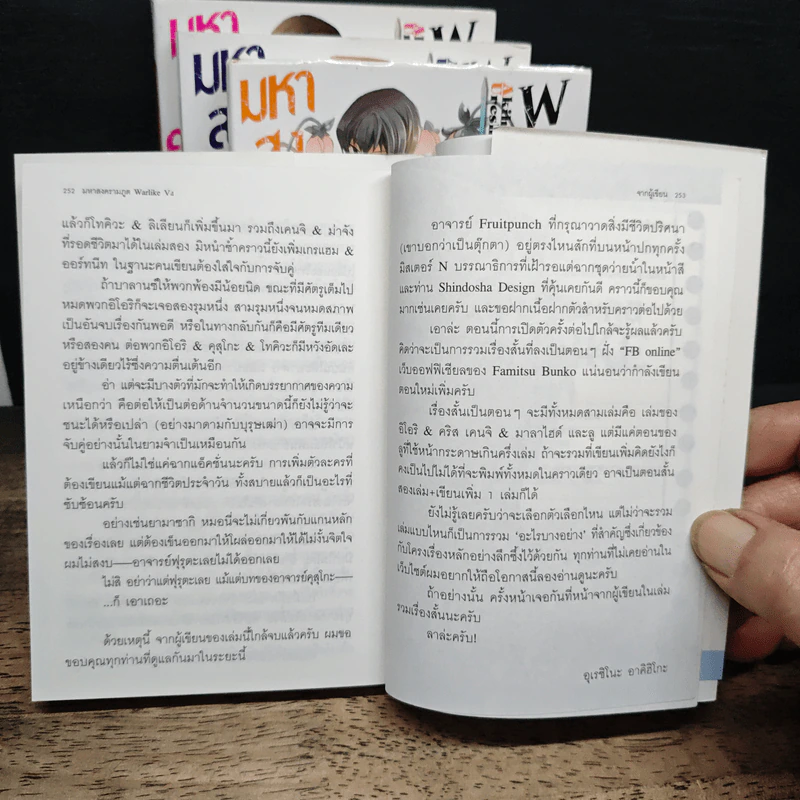 มหา
W
มหา
ส
W
มหา
W
252 มหาสงครามภูต Warlike V2
แล้วก็โทคิวะ & ลิเลียนก็เพิ่มขึ้นมา รวมถึงเคนจิ & ม่าจัง
ที่รอดชีวิตมาได้ในเล่มสอง มิหนำซ้ำคราวนี้ยังเพิ่มเกรแฮม &
ออร์ทนีท ในฐานะคนเขียนต้องใส่ใจกับการจับคู่
ถ้าบาลานซ์ให้พวกพ้องมีน้อยนิด ขณะที่มีศัตรูเต็มไป
หมดพวกอิโอริก็จะเจอสองรุมหนึ่ง สามรุมหนึ่งจนหมดสภาพ
เป็นอันจบเรื่องกันพอดี หรือในทางกลับกันก็คือมีศัตรูทีมเดียว
หรือสองคน ต่อพวกอิโอริ & คุสุโกะ & โทคิวะก็มีหวังอัดเละ
อยู่ข้างเดียวไร้ซึ่งความตื่นเต้นอีก
อ่า แต่จะมีบางตัวที่มักจะทำให้เกิดบรรยากาศของความ
เหนือกว่า คือต่อให้เป็นต่อด้านจำนวนขนาดนี้ก็ยังไม่รู้ว่าจะ
ชนะได้หรือเปล่า (อย่างมาดามกับบุรุษเฒ่า) อาจจะมีการ
จับคู่อย่างนั้นในยามจำเป็นเหมือนกัน
แล้วก็ไม่ใช่แค่ฉากแอ็คชั่นนะครับ การเพิ่มตัวละครที่
ต้องเขียนแม้แต่ฉากชีวิตประจำวัน ทั้งสบายแล้วก็เป็นอะไรที่
ซับซ้อนครับ
อย่างเช่นยามาซากิ หมอนี่จะไม่เกี่ยวพันกับแกนหลัก
ของเรื่องเลย แต่ต้องเข็นออกมาให้โผล่ออกมาให้ได้ไม่งั้นจิตใจ
ผมไม่สงบ──อาจารย์ฟุรุตะเลยไม่ได้ออกเลย
ไม่สิ อย่าว่าแต่ฟุรุตะเลย แม้แต่บทของอาจารย์คุสุโกะ──
...ก็ เอาเถอะ
ด้วยเหตุนี้ จากผู้เขียนของเล่มนี้ใกล้จบแล้วครับ ผมขอ
ขอบคุณทุกท่านที่ดูแลกันมาในระยะนี้
จากผู้เขียน 253
อาจารย์ Fruitpunch ที่กรุณาวาดสิ่งมีชีวิตปริศนา
(เขาบอกว่าเป็นตุ๊กตา) อยู่ตรงไหนสักที่บนหน้าปกทุกครั้ง
มิสเตอร์ N บรรณาธิการที่เฝ้ารอแต่ฉากชุดว่ายน้ำในหน้าสี
และท่าน Shindosha Design ที่คุ้นเคยกันดี คราวนี้ก็ขอบคุณ
มากเช่นเคยครับ และขอฝากเนื้อฝากตัวสำหรับคราวต่อไปด้วย
เอาล่ะ ตอนนี้การเปิดตัวครั้งต่อไปใกล้จะรู้ผลแล้วครับ
คิดว่าจะเป็นการรวมเรื่องสั้นที่ลงเป็นตอนๆ ฝั่ง “FB online”
เว็บออฟฟิเชียลของ Famitsu Bunko แน่นอนว่ากำลังเขียน
ตอนใหม่เพิ่มครับ
เรื่องสั้นเป็นตอนๆ จะมีทั้งหมดสามเล่มคือ เล่มของ
อิโอริ & คริส เคนจิ & มาลาไฮด์ และลู แต่มีแค่ตอนของ
ลูที่ใช้หน้ากระดาษเกินครึ่งเล่ม ถ้าจะรวมที่เขียนเพิ่มคิดยังไงก็
คงเป็นไปไม่ได้ที่จะพิมพ์ทั้งหมดในคราวเดียว อาจเป็นตอนสั้น
สองเล่ม+เขียนเพิ่ม 1 เล่มก็ได้
ยังไม่รู้เลยครับว่าจะเลือกตัวเลือกไหน แต่ไม่ว่าจะรวม
เล่มแบบไหนก็เป็นการรวม ‘อะไรบางอย่าง’ ที่สำคัญซึ่งเกี่ยวข้อง
กับโครงเรื่องหลักอย่างลึกซึ้งไว้ด้วยกัน ทุกท่านที่ไม่เคยอ่านใน
เว็บไซต์ผมอยากให้ถือโอกาสนี้ลองอ่านดูนะครับ
ถ้าอย่างนั้น ครั้งหน้าเจอกันที่หน้าจากผู้เขียนในเล่ม
รวมเรื่องสั้นนะครับ
ลาล่ะครับ!
อุเรชิโนะ อาคิฮิโกะ